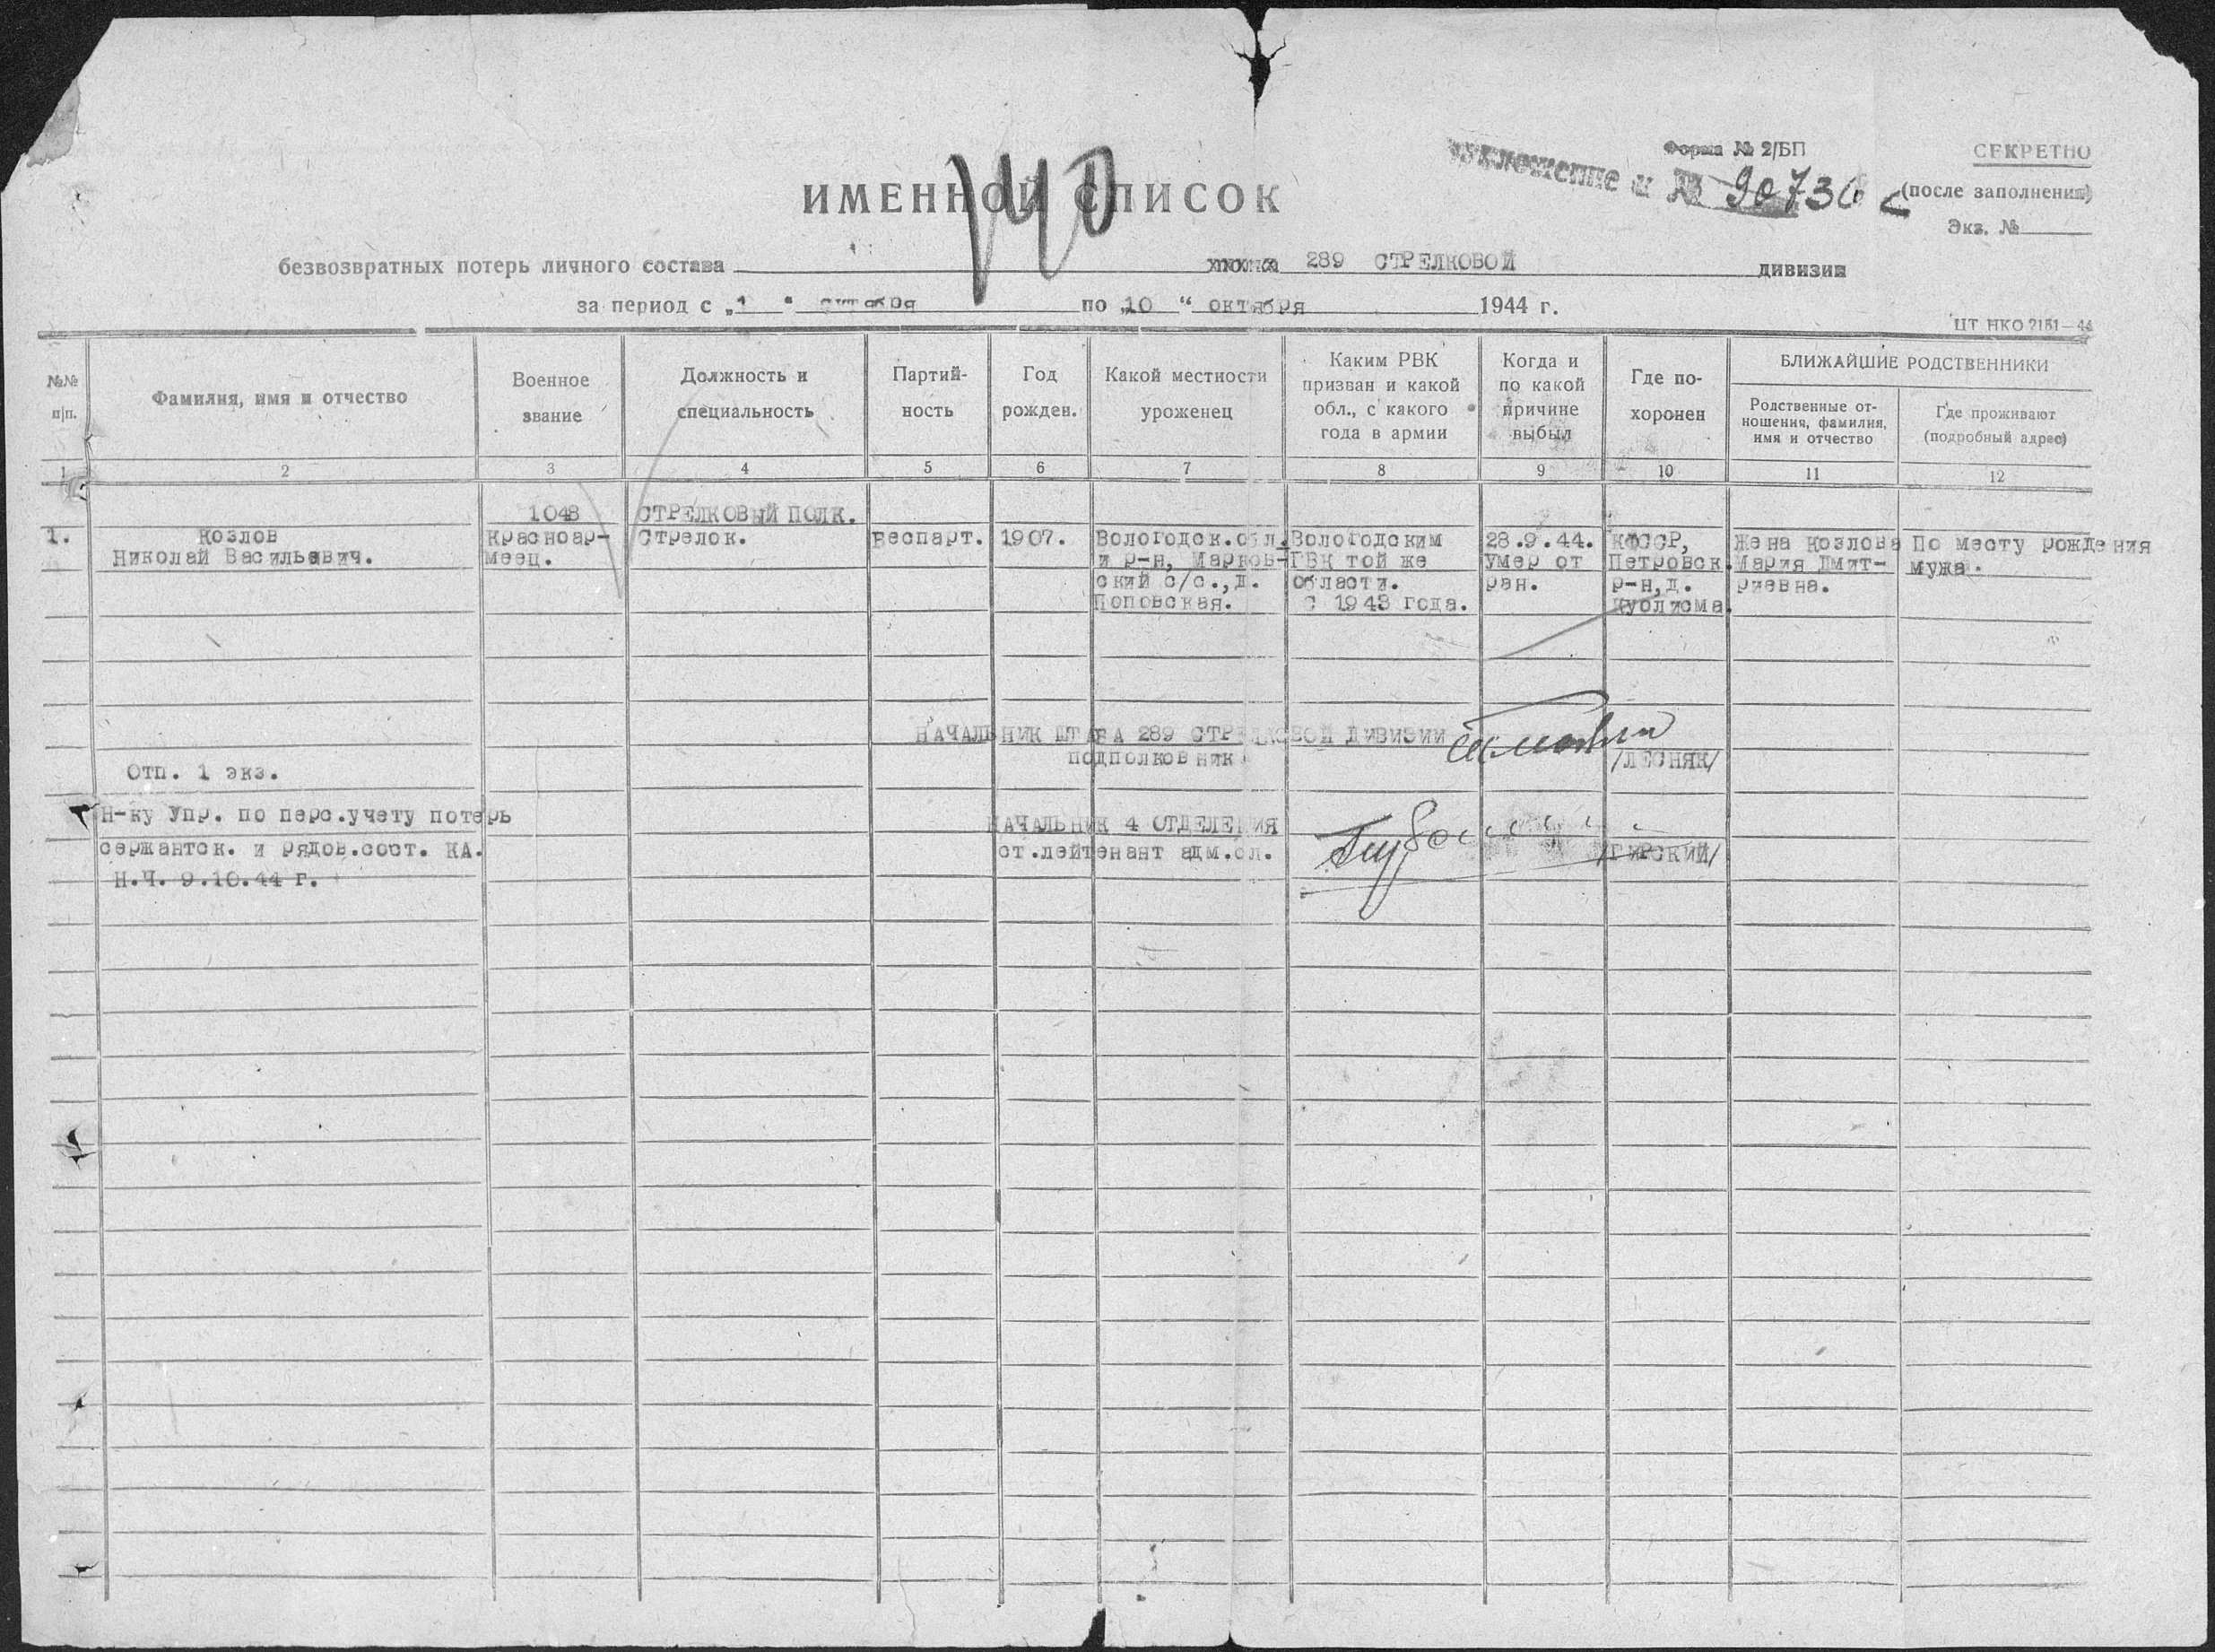 Форма № 2/БП
СЕКРЕТНО
140
№ 90736 с
(после заполнения)
ИМЕННОЙ СПИСОК
Экз. №
безвозвратных потерь личного состава 289 СТРЕЛКОВОЙ дивизии
за период с „1 “ октября по „10 “ октября 1944 г.
ЦТ НКО 2151—44
№№ п/п.
Фамилия, имя и отчество
Военное звание
Должность и специальность
Партий-
ность
Год рожден.
Какой местности уроженец
Каким РВК
призван и какой
обл., с какого
года в армии
Когда и
по какой
причине
выбыл
Где по-
хоронен
БЛИЖАЙШИЕ РОДСТВЕННИКИ
Родственные от-
ношения, фамилия,
имя и отчество
Где проживают
(подробный адрес)
1 2 3 4 5 6 7 8 9 10 11 12
1048 СТРЕЛКОВЫЙ ПОЛК.
1.
Козлов
Николай Васильевич.
Красноар-
меец.
Стрелок.
Беспарт.
1907.
Вологодск.обл.
и р-н, Марков-
ский с/с.,д.
Поповская.
Вологодским
ГВК той же
области.
С 1943 года.
28.9.44.
Умер от
ран.
КФССР,
Петровск.
р-н,д.
Жена Козлова
Мария Дмит-
риевна.
По месту рождения
мужа.
НАЧАЛЬНИК ШТАБА 289 СТРЕЛКОВОЙ ДИВИЗИИ
ПОДПОЛКОВНИК /ЛЕСНЯК/
Отп. 1 экз.
Н-ку Упр. по перс.учету потерь
сержантск. и рядов.сост. КА.
Н.Ч. 9.10.44 г.
НАЧАЛЬНИК 4 ОТДЕЛЕНИЯ
ст.лейтенант адм.сл. /ГИРСКИЙ/